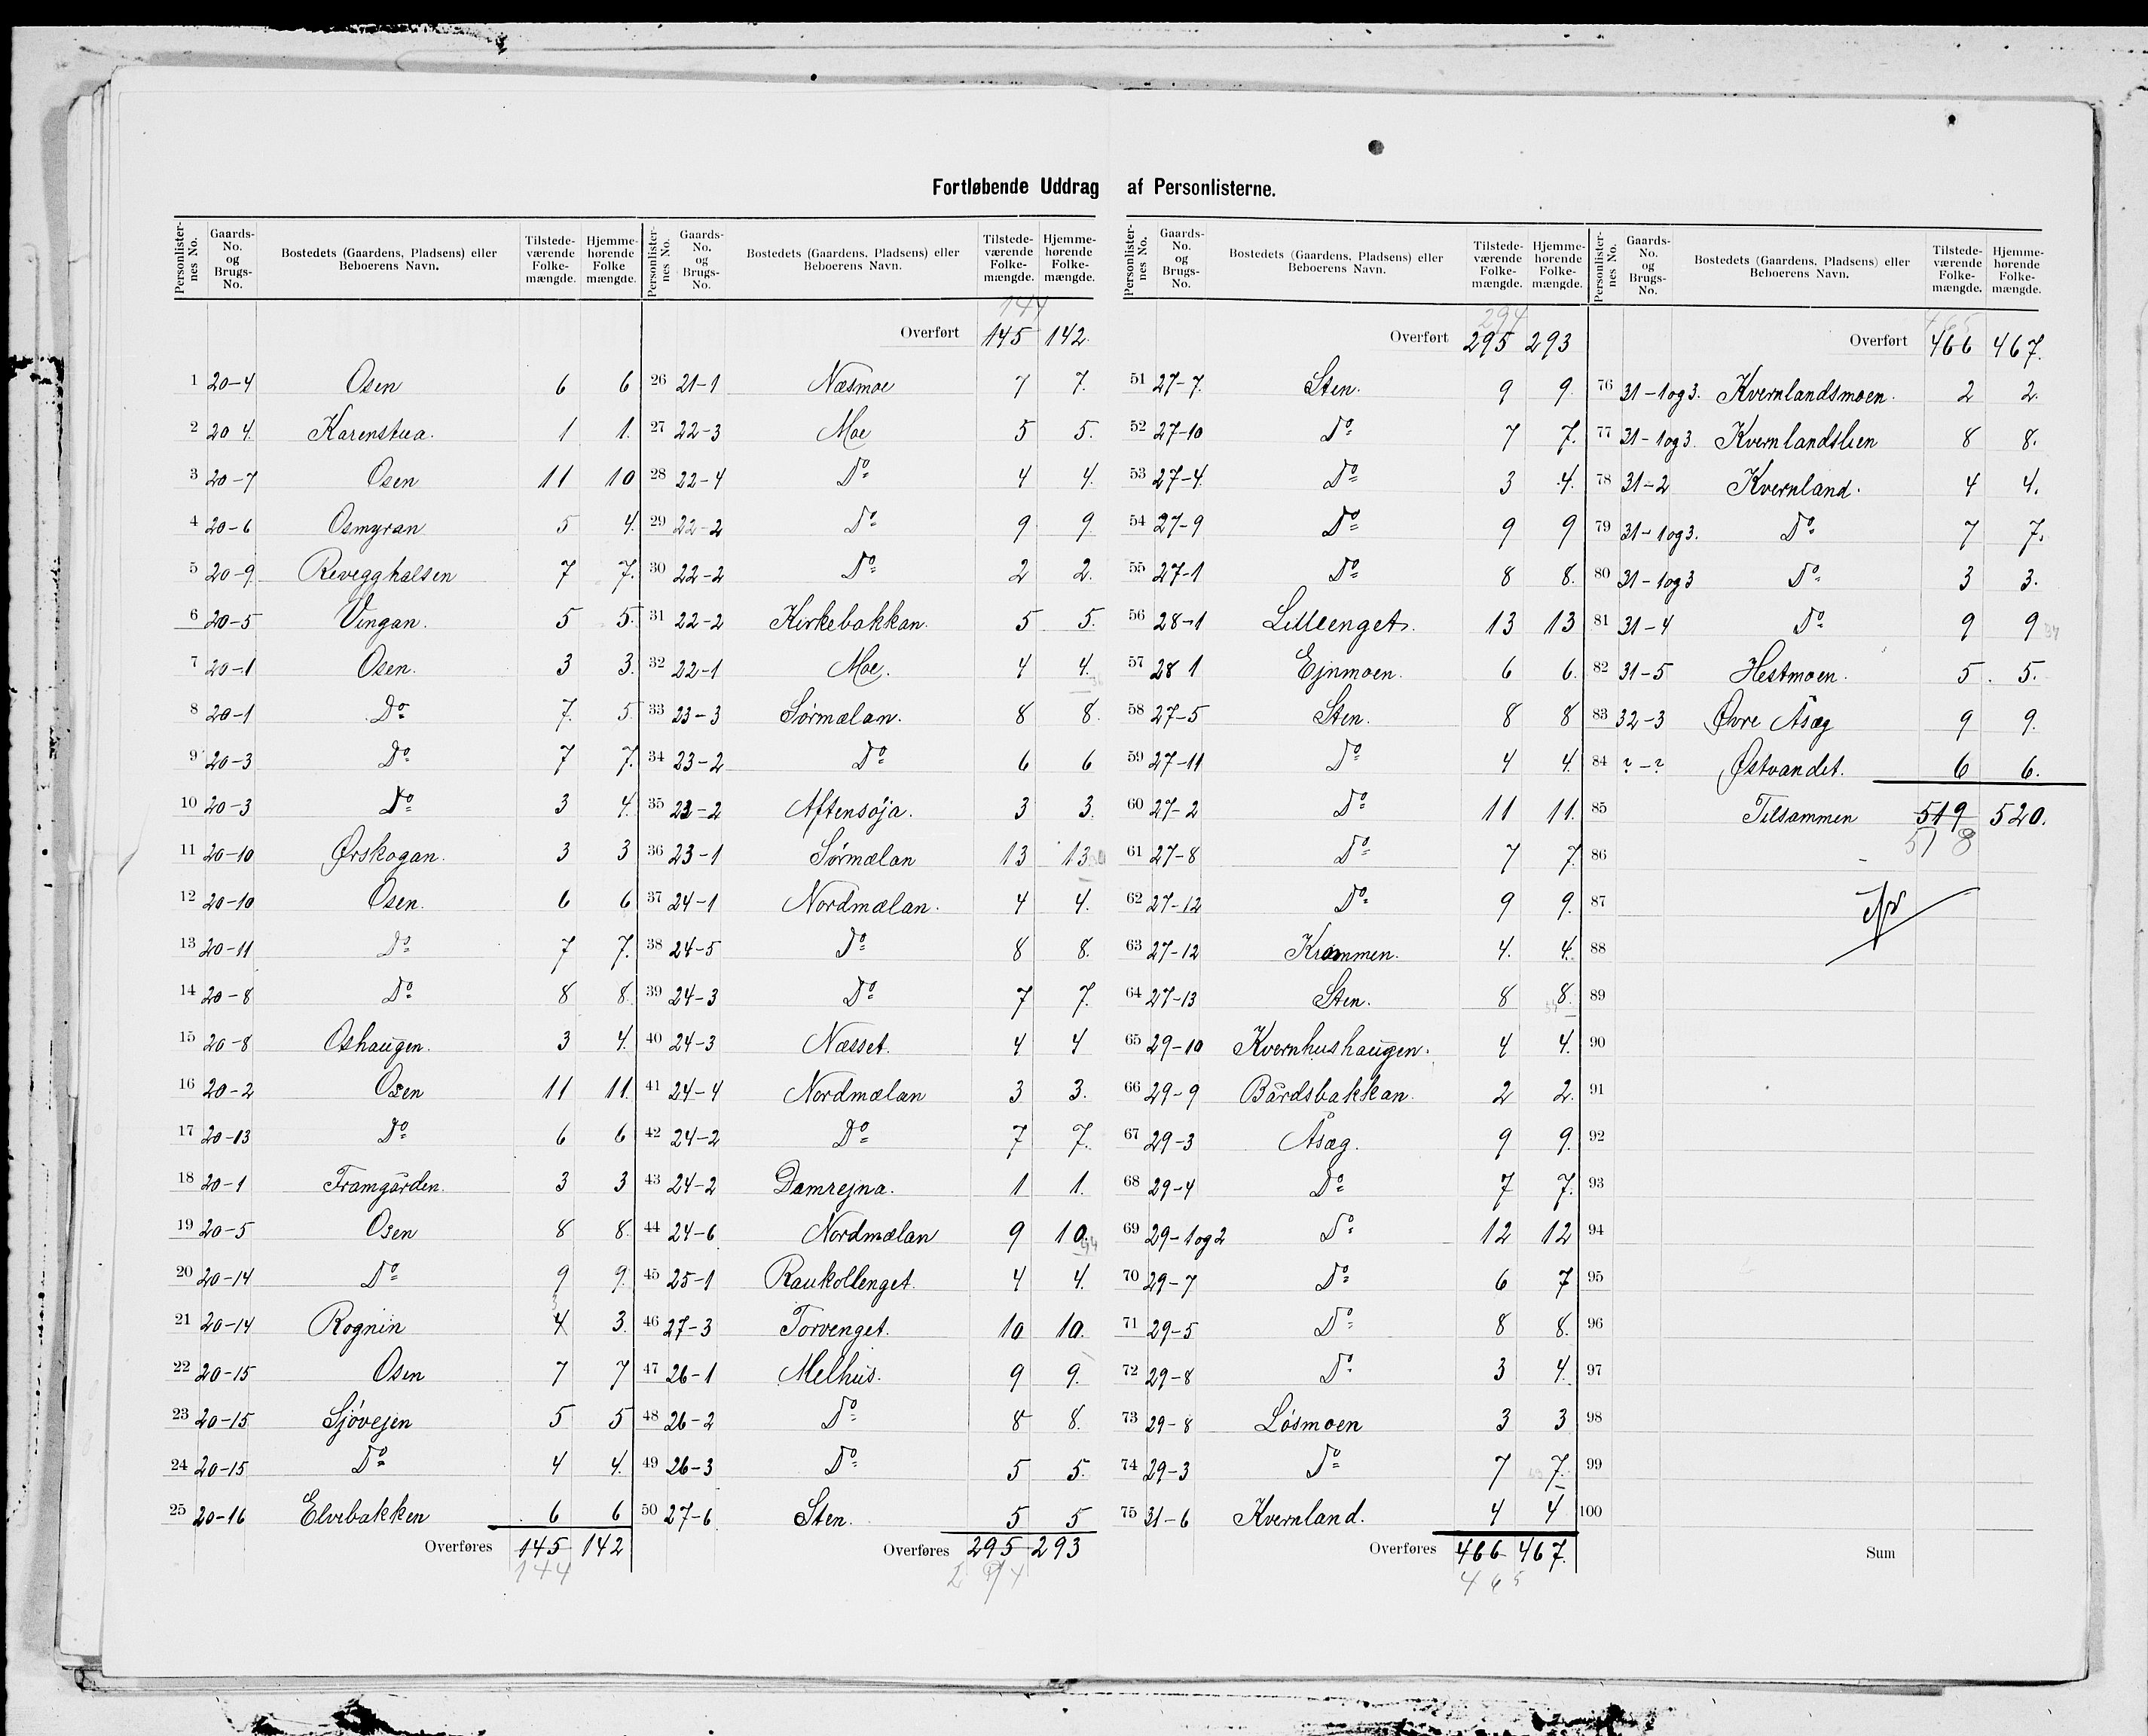 Fortløbende Uddrag af Personlisterne.
Personlisternes No. Gaards-No. og Brugs-No. Bostedets (Gaardens, Pladsens) eller Beboerens Navn. Tilstedeværende Folkemængde. Hjemmehørende Folkemængde.
1 20-4 Osen 6 6
2 20 4. Karenstua. 1 1.
3 20-7 Osen 11 10
4 20-6 Osmyran 5 4.
5 20-9 Revegghalsen 7 7.
6 20-5 Vingan. 5 5.
7 20-1 Osen. 3 3.
8 20-1 Do 7. 5.
9 20-3 Do 7 7.
10 20-3 Do 3 4.
11 20-10 Ørskogan. 3 3
12 20-10 Osen. 6 6
13 20-11 Do 7 7.
14 20-8 Do 8 8.
15 20-8 Oshaugen. 3 4.
16 20-2 Osen 11 11.
17 20-13 Do 6 6
18 20-1 Framgården. 3 3
19 20-5 Osen 8 8.
20 20-14 Do 9 9.
21 20-14 Rognin 4 3 3.
22 20-15 Osen 7 7
23 20-15 Sjøvejen 5 5
24 20-15 Do 4 4.
25 20-16 Elvebakken 6 6
Overføres 145 142
144
Personlisternes No. Gaards-No. og Brugs-No. Bostedets (Gaardens, Pladsens) eller Beboerens Navn. Tilstedeværende Folkemængde. Hjemmehørende Folkemængde.
144
Overført 145 142.
26 21-1 Næsmoe 7 7.
27 22-3 Moe 5 5.
28 22-4 Do 4 4.
29 22-2 Do 9 9.
30 22-2 Do 2 2.
31 22-2 Kirkebakkan. 5 5.
32 22-1 Moe. 4 4.
33 23-3 Sørmælan. 8 8.
34 23-2 Do 6 6
35 23-2 Aftensøja. 3 3.
36 23-1 Sørmælan 13 13
37 24-1 Nordmælan. 4 4.
38 24-5 Do 8 8.
39 24-3 Do 7 7.
40 24-3 Næsset. 4 4
41 24-4 Nordmælan 3 3.
42 24-2 Do 7 7.
43 24-2 Damrejna. 1 1.
44 24-6 Nordmælan 9 10.
45 25-1 Raukollenget. 4 4.
46 27-3 Torvenget. 10 10.
47 26-1 Melhus. 9 9.
48 26-2 Do 8 8.
49 26-3 Do 5 5.
50 27-6 Sten. 5 5
Overføres 295 293
294
Personlisternes No. Gaards-No. og Brugs-No. Bostedets (Gaardens, Pladsens) eller Beboerens Navn. Tilstedeværende Folkemængde. Hjemmehørende Folkemængde.
294
Overført 295 293
51 27-7. Sten. 9 9.
52 27-10 Do 7 7.
53 27-4. Do 3 4.
54 27-9 Do 9 9
55 27-1 Do 8 8.
56 28-1 Lilleenget. 13 13
57 28 1 Ejnmoen. 6 6.
58 27-5 Sten. 8 8
59 27-11 Do 4 4.
60 27-2 Do 11 11.
61 27-8 Do 7 7.
62 27-12 Do 9 9.
63 27-12 Krommen. 4. 4.
64 27-13 Sten. 8 8.
65 29-10 Kvernhushaugen. 4 4.
66 29-9 Bårdsbakkan. 2 2.
67 29-3 Åsæg. 9 9.
68 29-4 Do 7 7.
69 29-1og2 Do 12 12
70 29-7 Do 6 7
71 29-5 Do 8 8.
72 29-8 Do 3 4.
73 29-8 Løsmoen 3 3
74 29-3 Do 7 7.
75 31-6 Kvernland. 4 4
Overføres 466 467.
465
Personlisternes No. Gaards-No. og Brugs-No. Bostedets (Gaardens, Pladsens) eller Beboerens Navn. Tilstedeværende Folkemængde. Hjemmehørende Folkemængde.
465
Overført 466 467.
76 31-1og3. Kvernlandsmoen. 2 2.
77 31-1og3. Kvernlandslien 8 8.
78 31-2 Kvernland. 4 4.
79 31-1og3. Do 7 7.
80 31-1og3 Do 3 3.
81 31-4 Do 9 9
82 31-5 Hestmoen. 5. 5.
83 32-3 Øvre Åsæg 9 9.
84 ?-? Østvandet. 6 6.
85 Tilsammen 519 520.
86 518
87
88
89
90
91
92
93
94
95
96
97
98
99
100
Sum